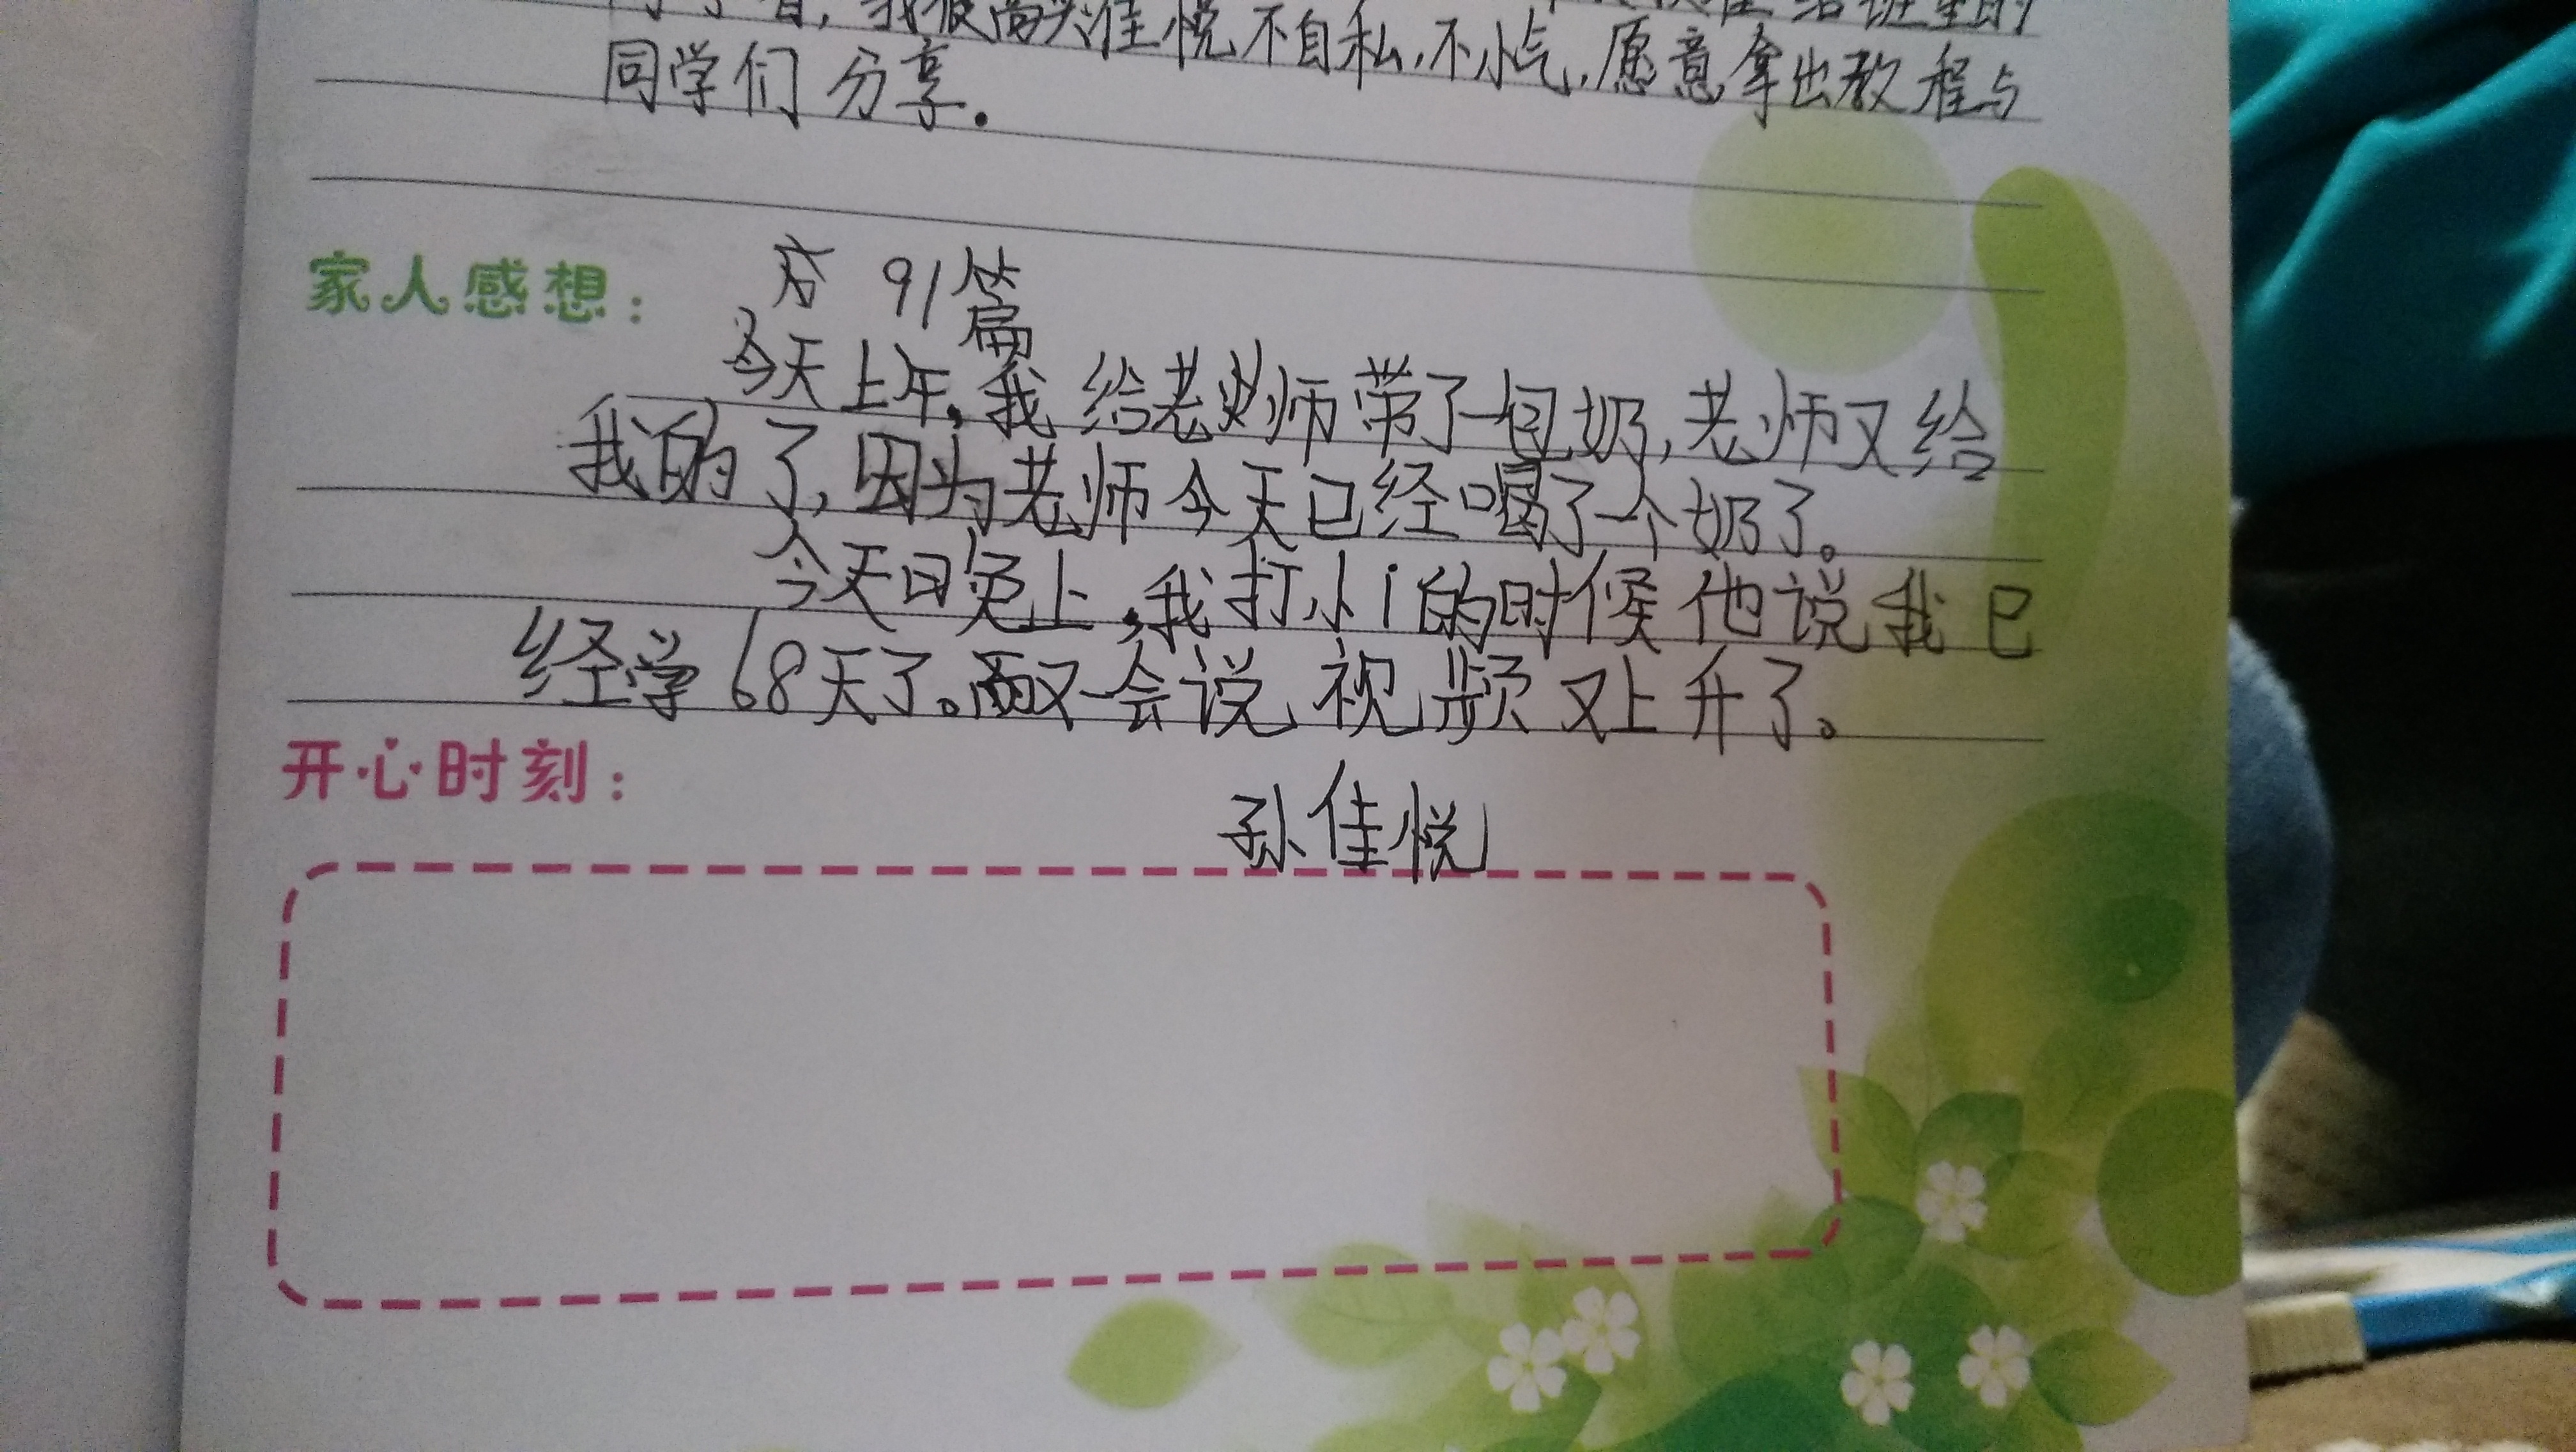 我很高兴佳悦不自私,不小气,愿意拿出教程与
同学们分享.
家人感想:
91篇
今天上午,我给老师带了一包奶,老师又给
我的了,因为老师今天已经喝了一个奶了。
今天晚上,我打小i的时候他说我已
经学68天了。又一会说视频又上升了。
开心时刻:
孙佳悦